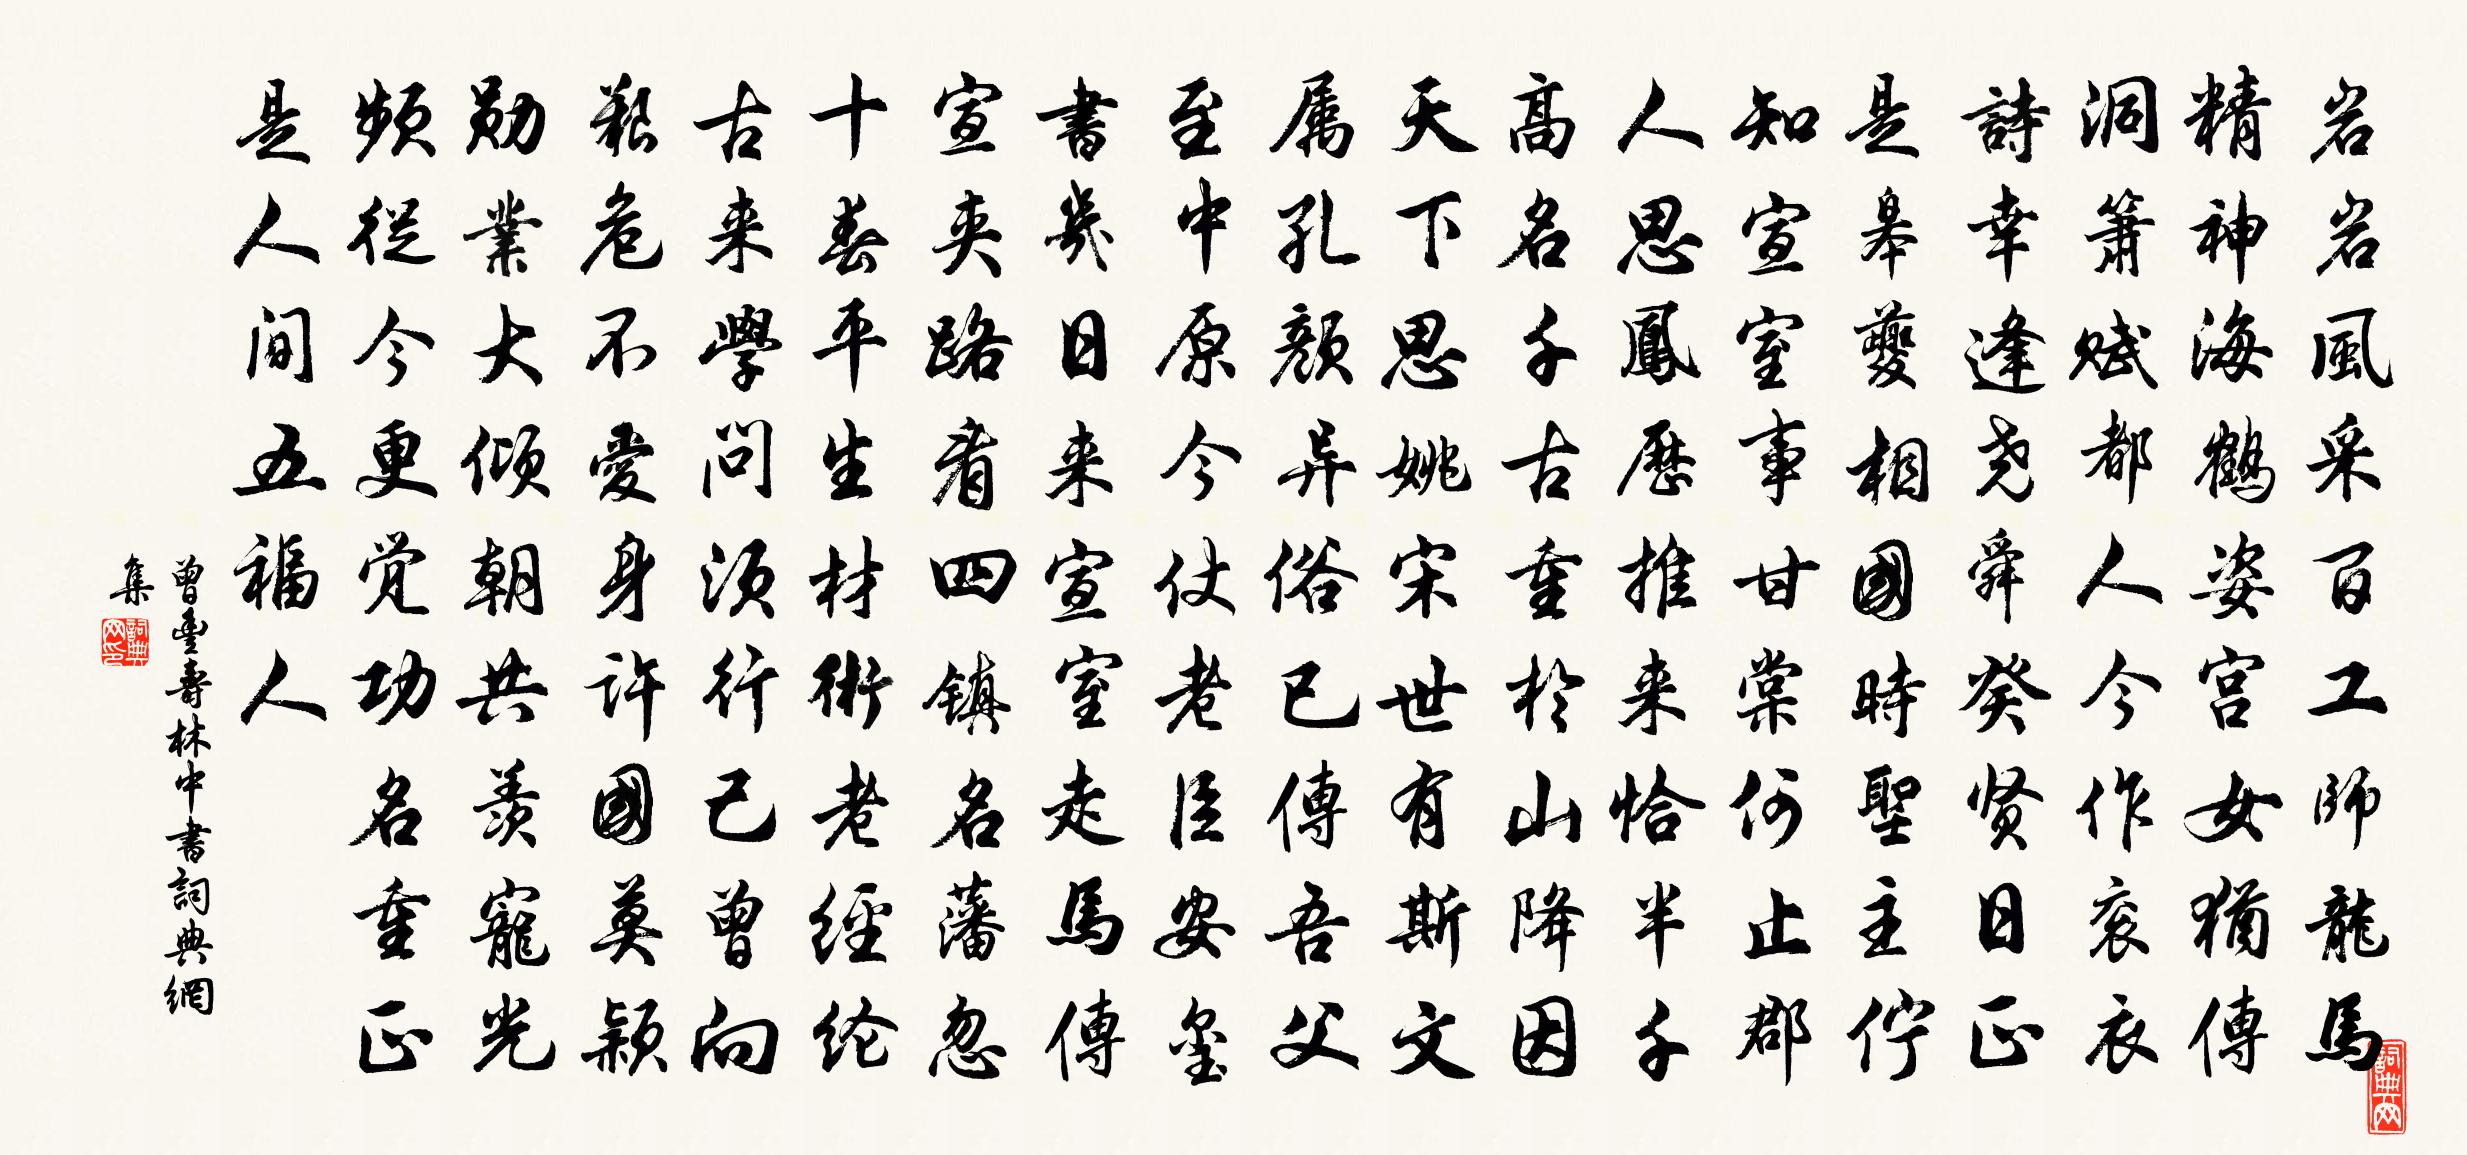 岩岩風采百工師龍馬
精神海鶴姿宫女猶傳
洞簫賦都人今作衮衣
詩幸逢尧舜癸贤日正
是皋夔相國時聖主佇
知宣室事甘棠何止郡
人思鳳歷推来恰半千
高名千古重於山降因
天下思姚宋世有斯文
属孔顔异俗已傳吾父
至中原今仗老臣安璽
書幾日来宣室走馬傳
宣夾路看四镇名藩忽
十春平生材術老經纶
古来學問須行己曾向
艱危不愛身許國莫穎
勛業大傾朝共羡寵光
頻從今更觉功名重正
是人间五福人
曾豐壽林中書詞典網
集
詞典网印
詞典网